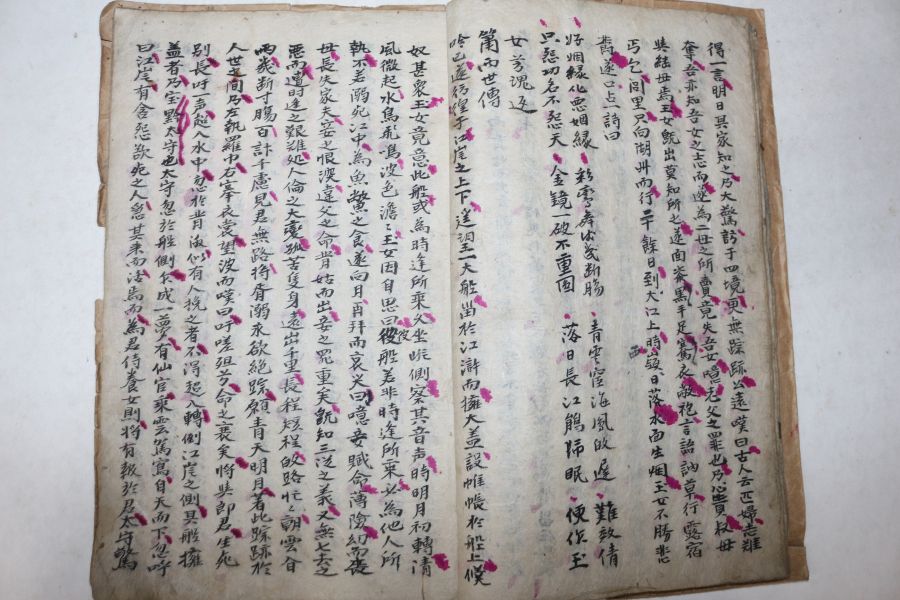 得一言明日其家知之乃大驚訪于四境更無踪跡公遠嘆曰古人云匹婦志難
奪吾亦知吾女之志而遂爲二母之所賣竟失吾女噫老父之罪也乃心責叔母
與結母焉玉女旣出莫知所之遂面漆黑手足寫衣敝袍言語訥草行露宿
丐乞閭里只向湖州而行二十餘日到大江上時日落水面生烟玉女不勝悲
舊遂口占一詩曰
好姻緣化惡姻緣 彩雲 幾断腸 青雲 海鳳 遲 難效倩
只怨功名不怨天 金鏡一破不重圓 落日長江鵑歸眠 便作玉
女芳魂返
簫而世傳
吟已遂彷徨于江岸之上下遙望一大船留於江滸而擁大盖設帷帳於船上候
奴甚衆玉女竟意此船或爲時逢所乘久坐 側察其音声時明月初轉清
風微起水鳥飛鳴波色澹々玉女因自思曰彼船若非時逢所乘必爲他人所
執不若溺死江中爲魚鱉之食遂向月再拜而哀哭曰噫妾賦命薄險幼而喪
母長失家夫妾之恨深違父之命背姑而出妾之罪重矣旣知三從之義又無七去之
惡而遭時逢之艱難処人倫之大變孤苦隻身遠出千里長程短程 路忙々朝雲 
雨幾断寸腸百計千慮見君無路將 溺永欲絶踪願青天明月著此踪跡於
人世之間乃左執羅巾右搴衣裳望波而嘆曰吁嗟 兮命之衰矣將與郎君生死
別長吁一声超入水中忽於背後似有人挽之者不得超入轉倒江岸之側其船擁
盖者乃 太守也太守忽於船側 成一夢有仙官乘雲駕 自天而下忽呼
曰江岸有含怨欲死之人急 其 而活焉而爲君侍養女則將有報於君太守驚